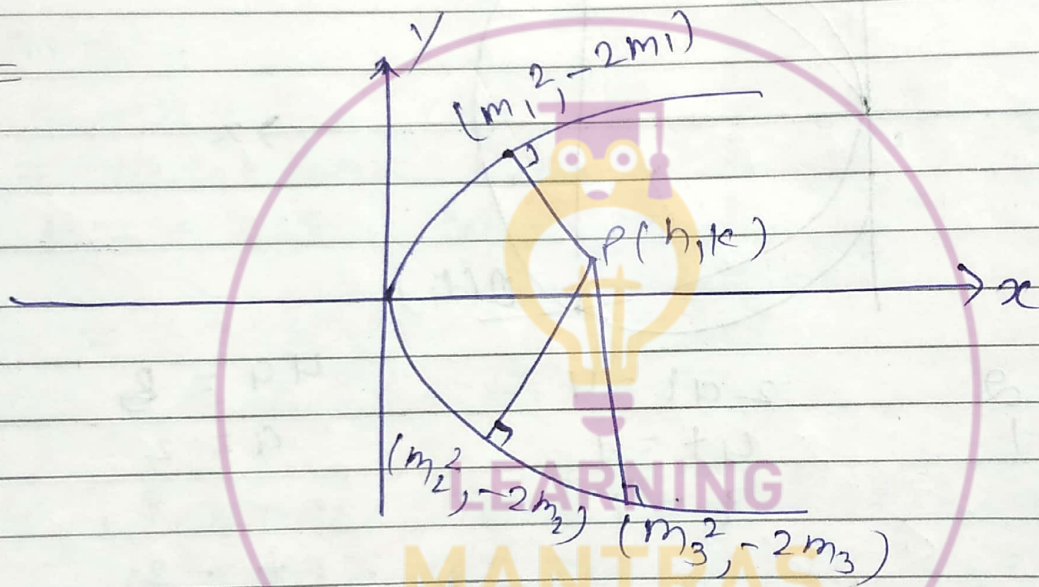 y
(m₁², -2m₁)
P(h,k)
x
(m₂², -2m₂)
(m₃², -2m₃)
LEARNING
MANTRAS